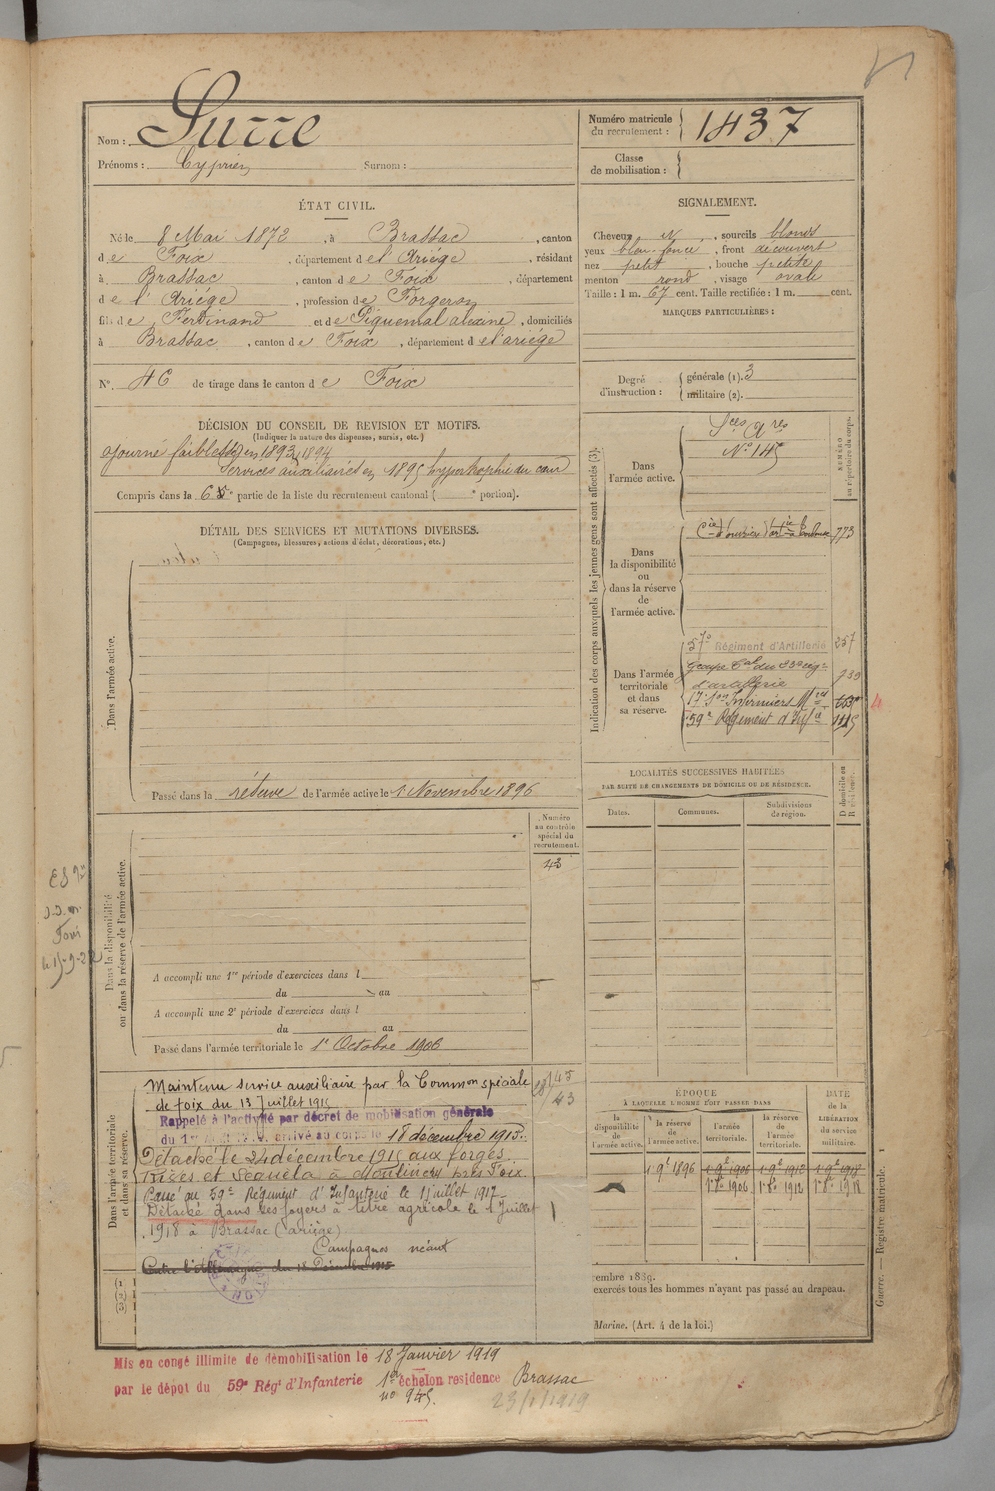 Nom : Surre
Prénoms : Cyprien Surnom :
Numéro matricule du recrutement : 1437
Classe de mobilisation :
ÉTAT CIVIL.
Né le 8 Mai 1872, à Brassac, canton
de Foix, département de l'Ariége, résidant
à Brassac, canton de Foix, département
de l'Ariége, profession de Forgeron
fils de Ferdinand et de Piquemal alexine, domiciliés
à Brassac, canton de Foix, département de l'ariége
N° 46 de tirage dans le canton de Foix
SIGNALEMENT.
Cheveux N, sourcils blonds
yeux bleu foncé, front découvert
nez petit, bouche petite
menton rond, visage ovale
Taille : 1 m. 67 cent. Taille rectifiée : 1 m. cent.
MARQUES PARTICULIÈRES :
Degré d'instruction : générale (1). 3
militaire (2).
DÉCISION DU CONSEIL DE REVISION ET MOTIFS.
(Indiquer la nature des dispenses, sursis, etc.)
ajourné faiblesse en 1893, 1894
Services auxiliaires en 1895 hypertrophie du cœur
Compris dans la 6e partie de la liste du recrutement cantonal ( e portion).
DÉTAIL DES SERVICES ET MUTATIONS DIVERSES.
(Campagnes, blessures, actions d'éclat, décorations, etc.)
Dans l'armée active.
Passé dans la réserve de l'armée active le 1 Novembre 1896
Indication des corps auxquels les jeunes gens sont affectés (3).
NUMÉRO au répertoire du corps.
Dans l'armée active.
Sces Ares
N° 145
Dans la disponibilité ou dans la réserve de l'armée active.
Cie d'ouvriers d'artie à Toulouse 773
Dans l'armée territoriale et dans sa réserve.
57e Régiment d'Artillerie 257
Groupe Tal du 23e rég.
d'artillerie
17e Son Infirmiers Mres
59e Régiment d'Infie 1145
4
LOCALITÉS SUCCESSIVES HABITÉES
PAR SUITE DE CHANGEMENTS DE DOMICILE OU DE RÉSIDENCE.
Dates. Communes. Subdivisions de région. D domicile ou R résidence.
Numéro au contrôle spécial du recrutement.
43
Dans la disponibilité ou dans la réserve de l'armée active.
A accompli une 1re période d'exercices dans l
du au
A accompli une 2e période d'exercices dans l
du au
Passé dans l'armée territoriale le 1er Octobre 1906
Dans l'armée territoriale et dans sa réserve.
Maintenu service auxiliaire par la Common spéciale
de foix du 13 Juillet 1915
Rappelé à l'activité par décret de mobilisation générale
du 1er arrivé au corps le 18 décembre 1915.
Détaché le 24 décembre 1915 aux forges
et Séguéla à Moulinery près Foix.
Passé au 59e Régiment d'Infanterie le 1 juillet 1917
Détaché dans ses foyers à titre agricole le 1 Juillet
1918 à Brassac (ariège)
Campagnes néant
Contre l'Allemagne du 18 Décembre 1915
ÉPOQUE
À LAQUELLE L'HOMME DOIT PASSER DANS
la disponibilité de l'armée active. la réserve de l'armée active. l'armée territoriale. la réserve de l'armée territoriale.
DATE de la LIBÉRATION du service militaire.
1 9e 1896 1 9e 1906 1 9e 1912 1 9e 1918
1 8e 1906 1 8e 1912 1 8e 1918
cembre 1889.
exercés tous les hommes n'ayant pas passé au drapeau.
Marine. (Art. 4 de la loi.)
Guerre. — Registre matricule.
Mis en congé illimité de démobilisation le 18 Janvier 1919
par le dépôt du 59e Régt d'Infanterie 1er échelon residence Brassac
no 945.
23/1/1919